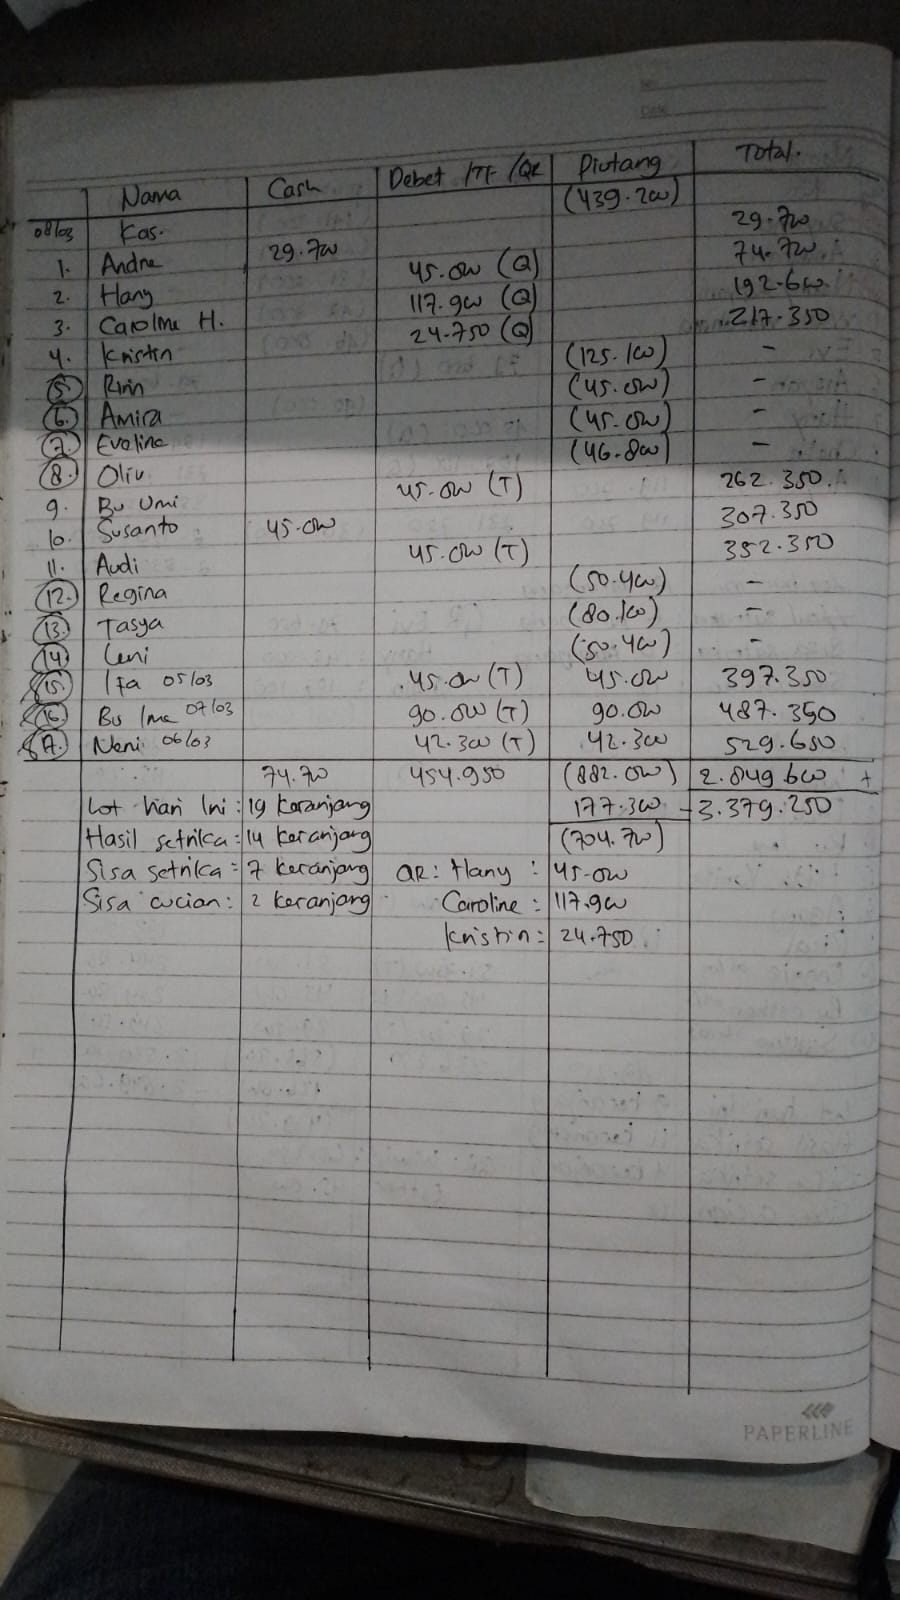 No.
Date
Nama Cash Debet /TF /QR Piutang Total.
08/03 Kas. (439.200)
1. Andre 29.700 29.700
2. Hany 45.000 (Q) 74.700
3. Caroline H. 117.900 (Q) 192.600
4. Kristin 24.750 (Q) 217.350
5. Ririn (125.100) -
6. Amira (45.000) -
7. Eveline (45.000) -
8. Oliv (46.800) -
9. Bu Umi 45.000 (T) 262.350
10. Susanto 45.000 307.350
11. Audi 45.000 (T) 352.350
12. Regina (50.400) -
13. Tasya (80.100) -
14. Leni (50.400) -
15. Ita 05/03 45.000 (T) 45.000 397.350
16. Bu Ima 07/03 90.000 (T) 90.000 487.350
17. Neni 06/03 42.300 (T) 42.300 529.650
74.700 454.950 (882.000) 2.849.600 +
Lot hari Ini : 19 Keranjang 177.300 - 3.379.250
Hasil setrika = 14 keranjang (704.700)
Sisa setrika = 7 keranjang QR : Hany : 45.000
Sisa cucian : 2 keranjang Caroline = 117.900
Kristin = 24.750
PAPERLINE